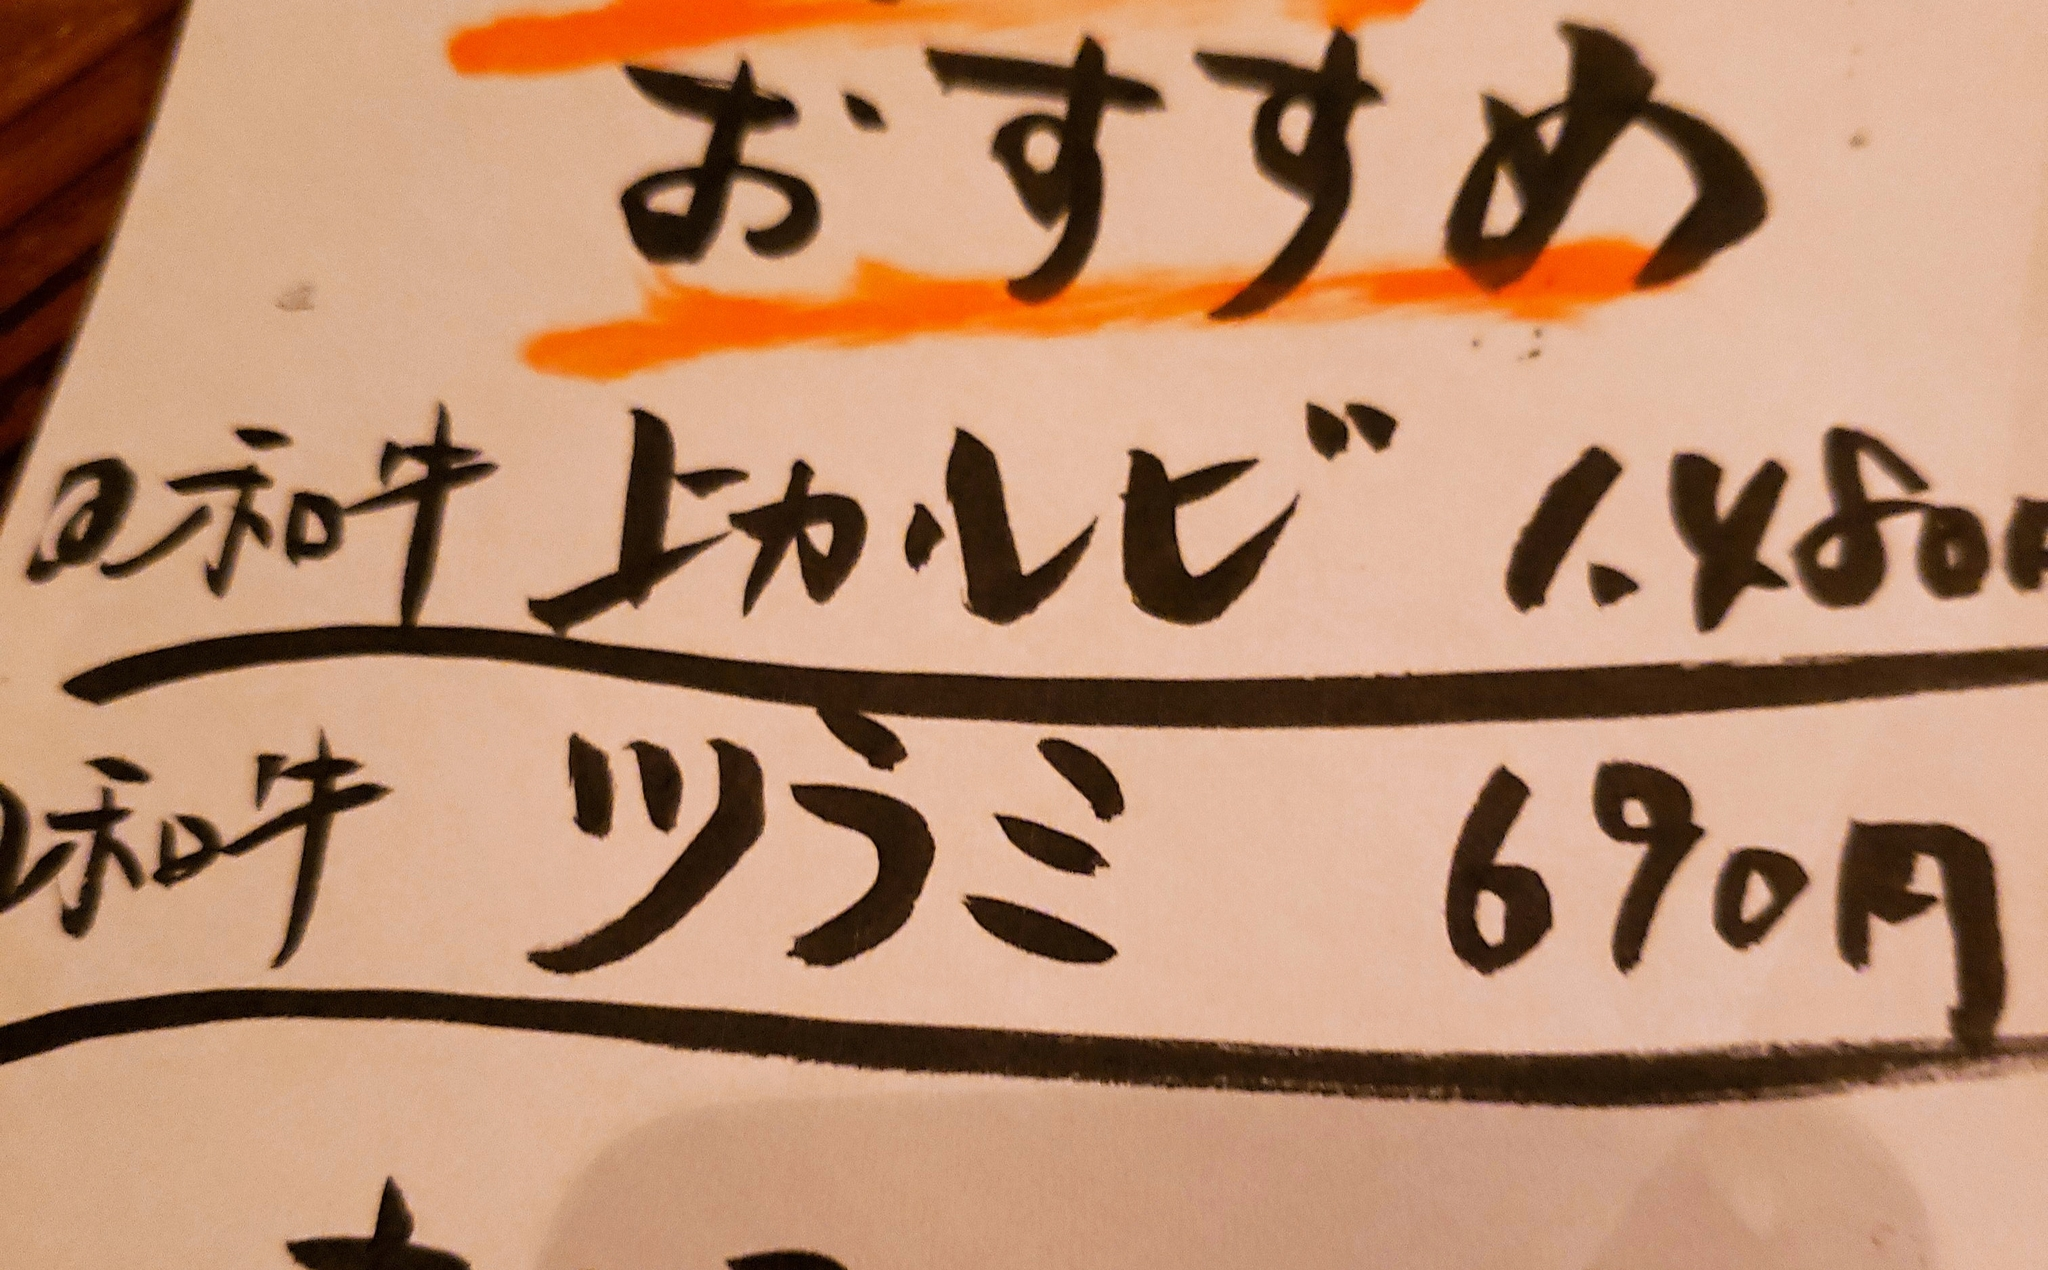 おすすめ
@和牛 上カルビ 1.480円
和牛 ツラミ 690円